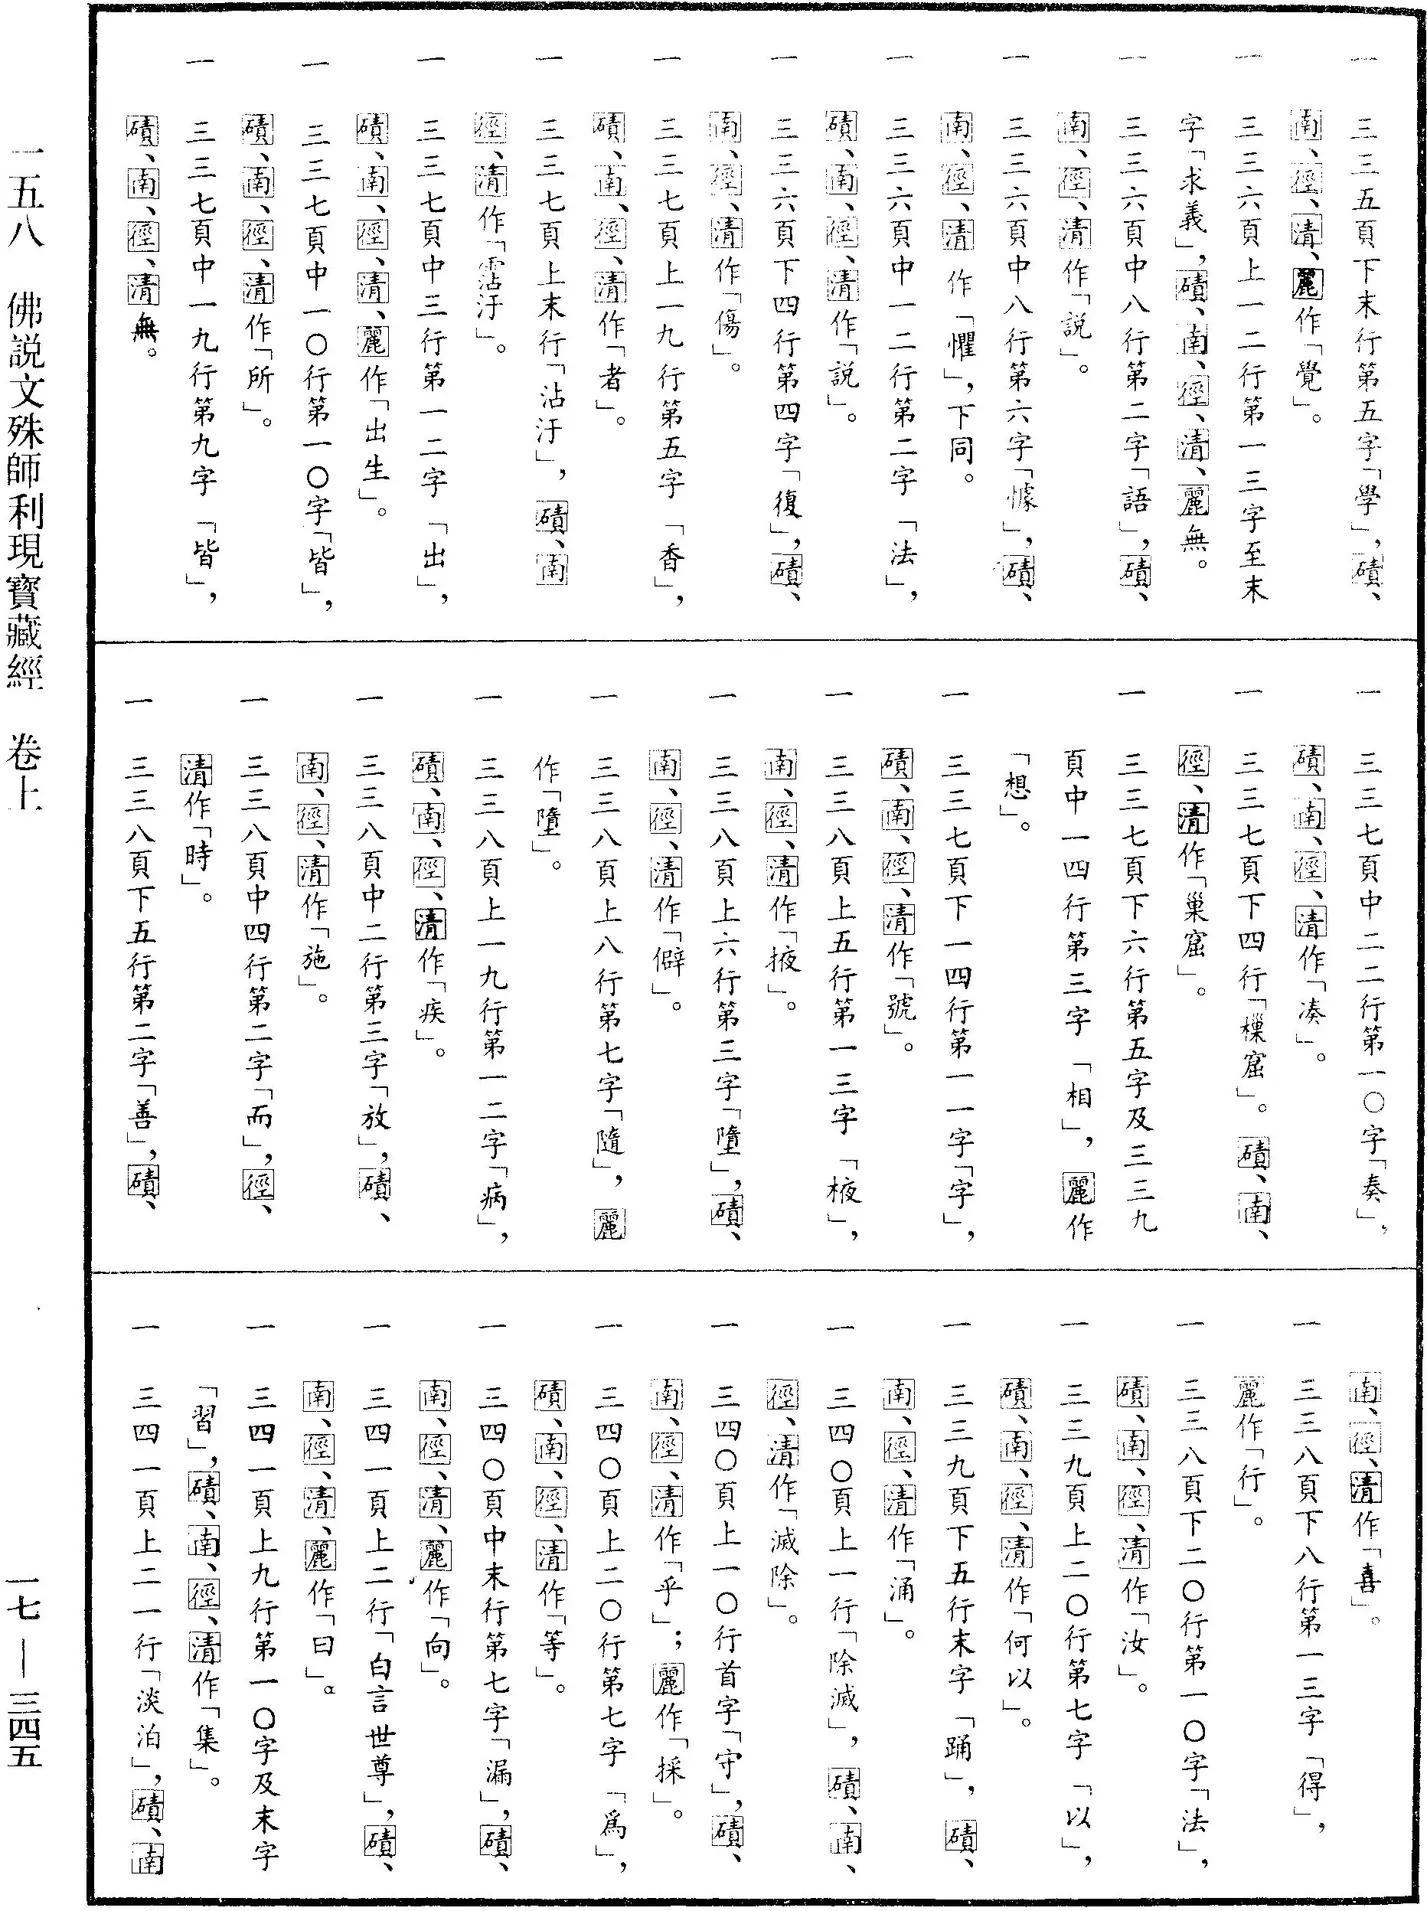 一　三三五頁下末行第五字「學」，磧、
南、徑、清、麗作「覺」。
一　三三六頁上一二行第一三字至末
字「求義」，磧、南、徑、清、麗無。
一　三三六頁中八行第二字「語」，磧、
南、徑、清作「説」。
一　三三六頁中八行第六字「懅」，磧、
南、徑、清作「懼」，下同。
一　三三六頁中一二行第二字「法」，
磧、南、徑、清作「説」。
一　三三六頁下四行第四字「復」，磧、
南、徑、清作「傷」。
一　三三七頁上一九行第五字「香」，
磧、南、徑、清作「者」。
一　三三七頁上末行「沾汙」，磧、南
徑、清作「霑汙」。
一　三三七頁中三行第一二字「出」，
磧、南、徑、清、麗作「出生」。
一　三三七頁中一〇行第一〇字「皆」，
磧、南、徑、清作「所」。
一　三三七頁中一九行第九字「皆」，
磧、南、徑、清無。
一　三三七頁中二二行第一〇字「奏」，
磧、南、徑、清作「凑」。
一　三三七頁下四行「樔窟」。磧、南、
徑、清作「巢窟」。
一　三三七頁下六行第五字及三三九
頁中一四行第三字「相」，麗作
「想」。
一　三三七頁下一四行第一一字「字」，
磧、南、徑、清作「號」。
一　三三八頁上五行第一三字「棭」，
南、徑、清作「掖」。
一　三三八頁上六行第三字「墮」，磧、
南、徑、清作「僻」。
一　三三八頁上八行第七字「隨」，麗
作「墮」。
一　三三八頁上一九行第一二字「病」，
磧、南、徑、清作「疾」。
一　三三八頁中二行第三字「放」，磧、
南、徑、清作「施」。
一　三三八頁中四行第二字「而」，徑、
清作「時」。
一　三三八頁下五行第二字「善」，磧、
南、徑、清作「喜」。
一　三三八頁下八行第一三字「得」，
麗作「行」。
一　三三八頁下二〇行第一〇字「法」，
磧、南、徑、清作「汝」。
一　三三九頁上二〇行第七字「以」，
磧、南、徑、清作「何以」。
一　三三九頁下五行末字「踊」，磧、
南、徑、清作「涌」。
一　三四〇頁上一行「除滅」，磧、南、
徑、清作「滅除」。
一　三四〇頁上一〇行首字「守」，磧、
南、徑、清作「乎」；麗作「採」。
一　三四〇頁上二〇行第七字「爲」，
磧、南、徑、清作「等」。
一　三四〇頁中末行第七字「漏」，磧、
南、徑、清、麗作「向」。
一　三四一頁上二行「白言世尊」，磧、
南、徑、清、麗作「曰」。
一　三四一頁上九行第一〇字及末字
「習」，磧、南、徑、清作「集」。
一　三四一頁上二一行「淡泊」，磧、南
一五八　佛説文殊師利現寶藏經　卷上
一七—三四五